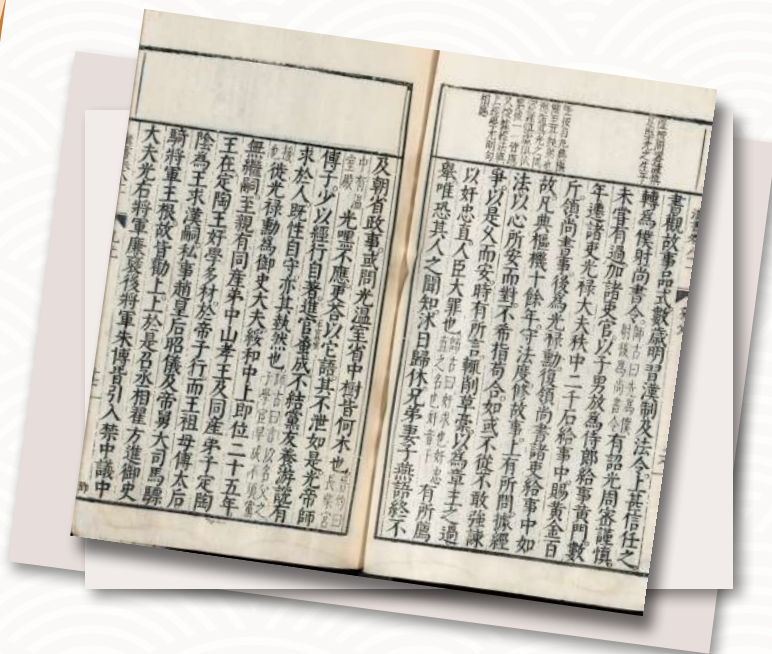 書觀故事品式數歲明習漢制及法令上甚信任之
轉為僕射尚書令師古曰先為僕射後為尚書令有詔光周密謹慎
未嘗有過加諸吏官以子男放為侍郎給事黃門數
年遷諸吏光祿大夫秩中二千石給事中賜黃金百
斤領尚書事後為光祿勳復領尚書諸吏給事中如
故凡典樞機十餘年守法度修故事上有所問據經
法以心所安而對不希指苟合如或不從不敢強諫
爭以是久而安時有所言輒削草藁以為章主之過
以奸忠直人臣大罪也師古曰奸求也奸忠直之名也奸音干有所薦
舉唯恐其人之聞知沐日歸休兄弟妻子燕語終不
及朝省政事或問光溫室省中樹皆何木也晉灼曰長樂宮
中有溫室殿光嘿不應更答以它語其不泄如是光帝師
傅子少以經行自著進官蚤成不結黨友養游說有
求於人既性自守亦其埶然也師古曰言以名父之子學官早成不須黨
援也徙光祿勳為御史大夫綏和中上即位二十五年
無繼嗣至親有同產弟中山孝王及同產弟子定陶
王在定陶王好學多材於帝子行而王祖母傅太后
陰為王求漢嗣私事趙皇后昭儀及帝舅大司馬驃
騎將軍王根故皆勸上上於是召丞相翟方進御史
大夫光右將軍廉褒後將軍朱博皆引入禁中議中